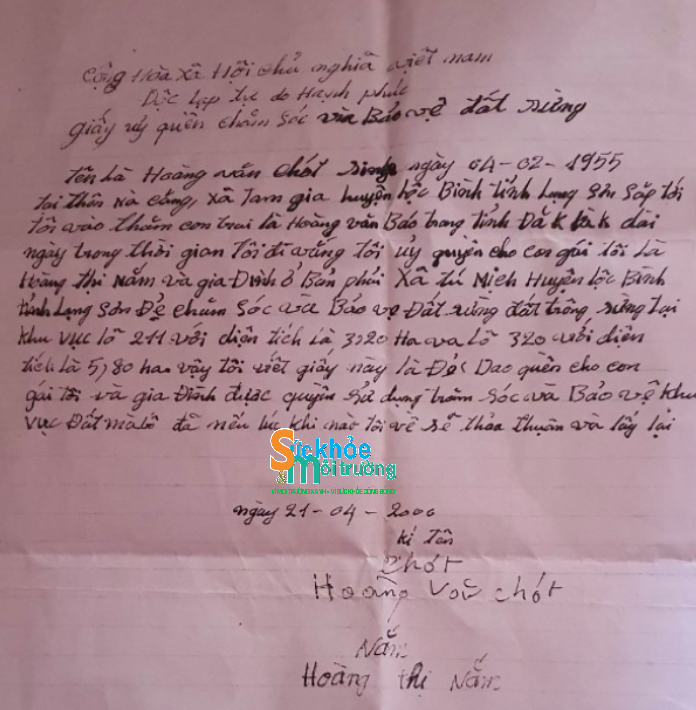 Cộng Hòa Xã Hội chủ nghĩa việt nam
Độc lập tự do Hạnh phúc
giấy uỷ quền chăm sóc và Bảo vệ đất rừng
tên là Hoàng văn chót sinh ngày 04-02-1955
tại thôn Nà căng, xã Tam gia huyện lộc Bình tỉnh Lạng Sơn Sắp tới
tôi vào thăm con trai là Hoàng văn Báo trong tỉnh Đắk Lăk dài
ngày trong thời gian Tôi đi vắng tôi uỷ quyền cho con gái tôi là
Hoàng thị Nắm và gia Đình ở Bản phải Xã tú Mịch Huyện lộc Bình
tỉnh Lạng Sơn Để chăm sóc và Bảo vệ Đất rừng đất trồng rừng tại
khu vực lô 211 với diện tích là 3,20 Ha va lô 320 với diện
tích là 5,80 ha vậy tôi viết giấy này là Để Dao quền cho con
gái tôi và gia Đình được quyền sử dụng trăm sóc và Bảo vệ khu
vực Đất mà lô đã nếu lúc khi nào tôi về sẽ thỏa thuận và lấy lại
Sức khỏe
& môi trường
VÌ MÔI TRƯỜNG XANH - VÌ SỨC KHỎE CỘNG ĐỒNG
ngày 21-04-2000
kí Tên
Chót
Hoàng Văn chót
Nắm
Hoàng thị Nắm